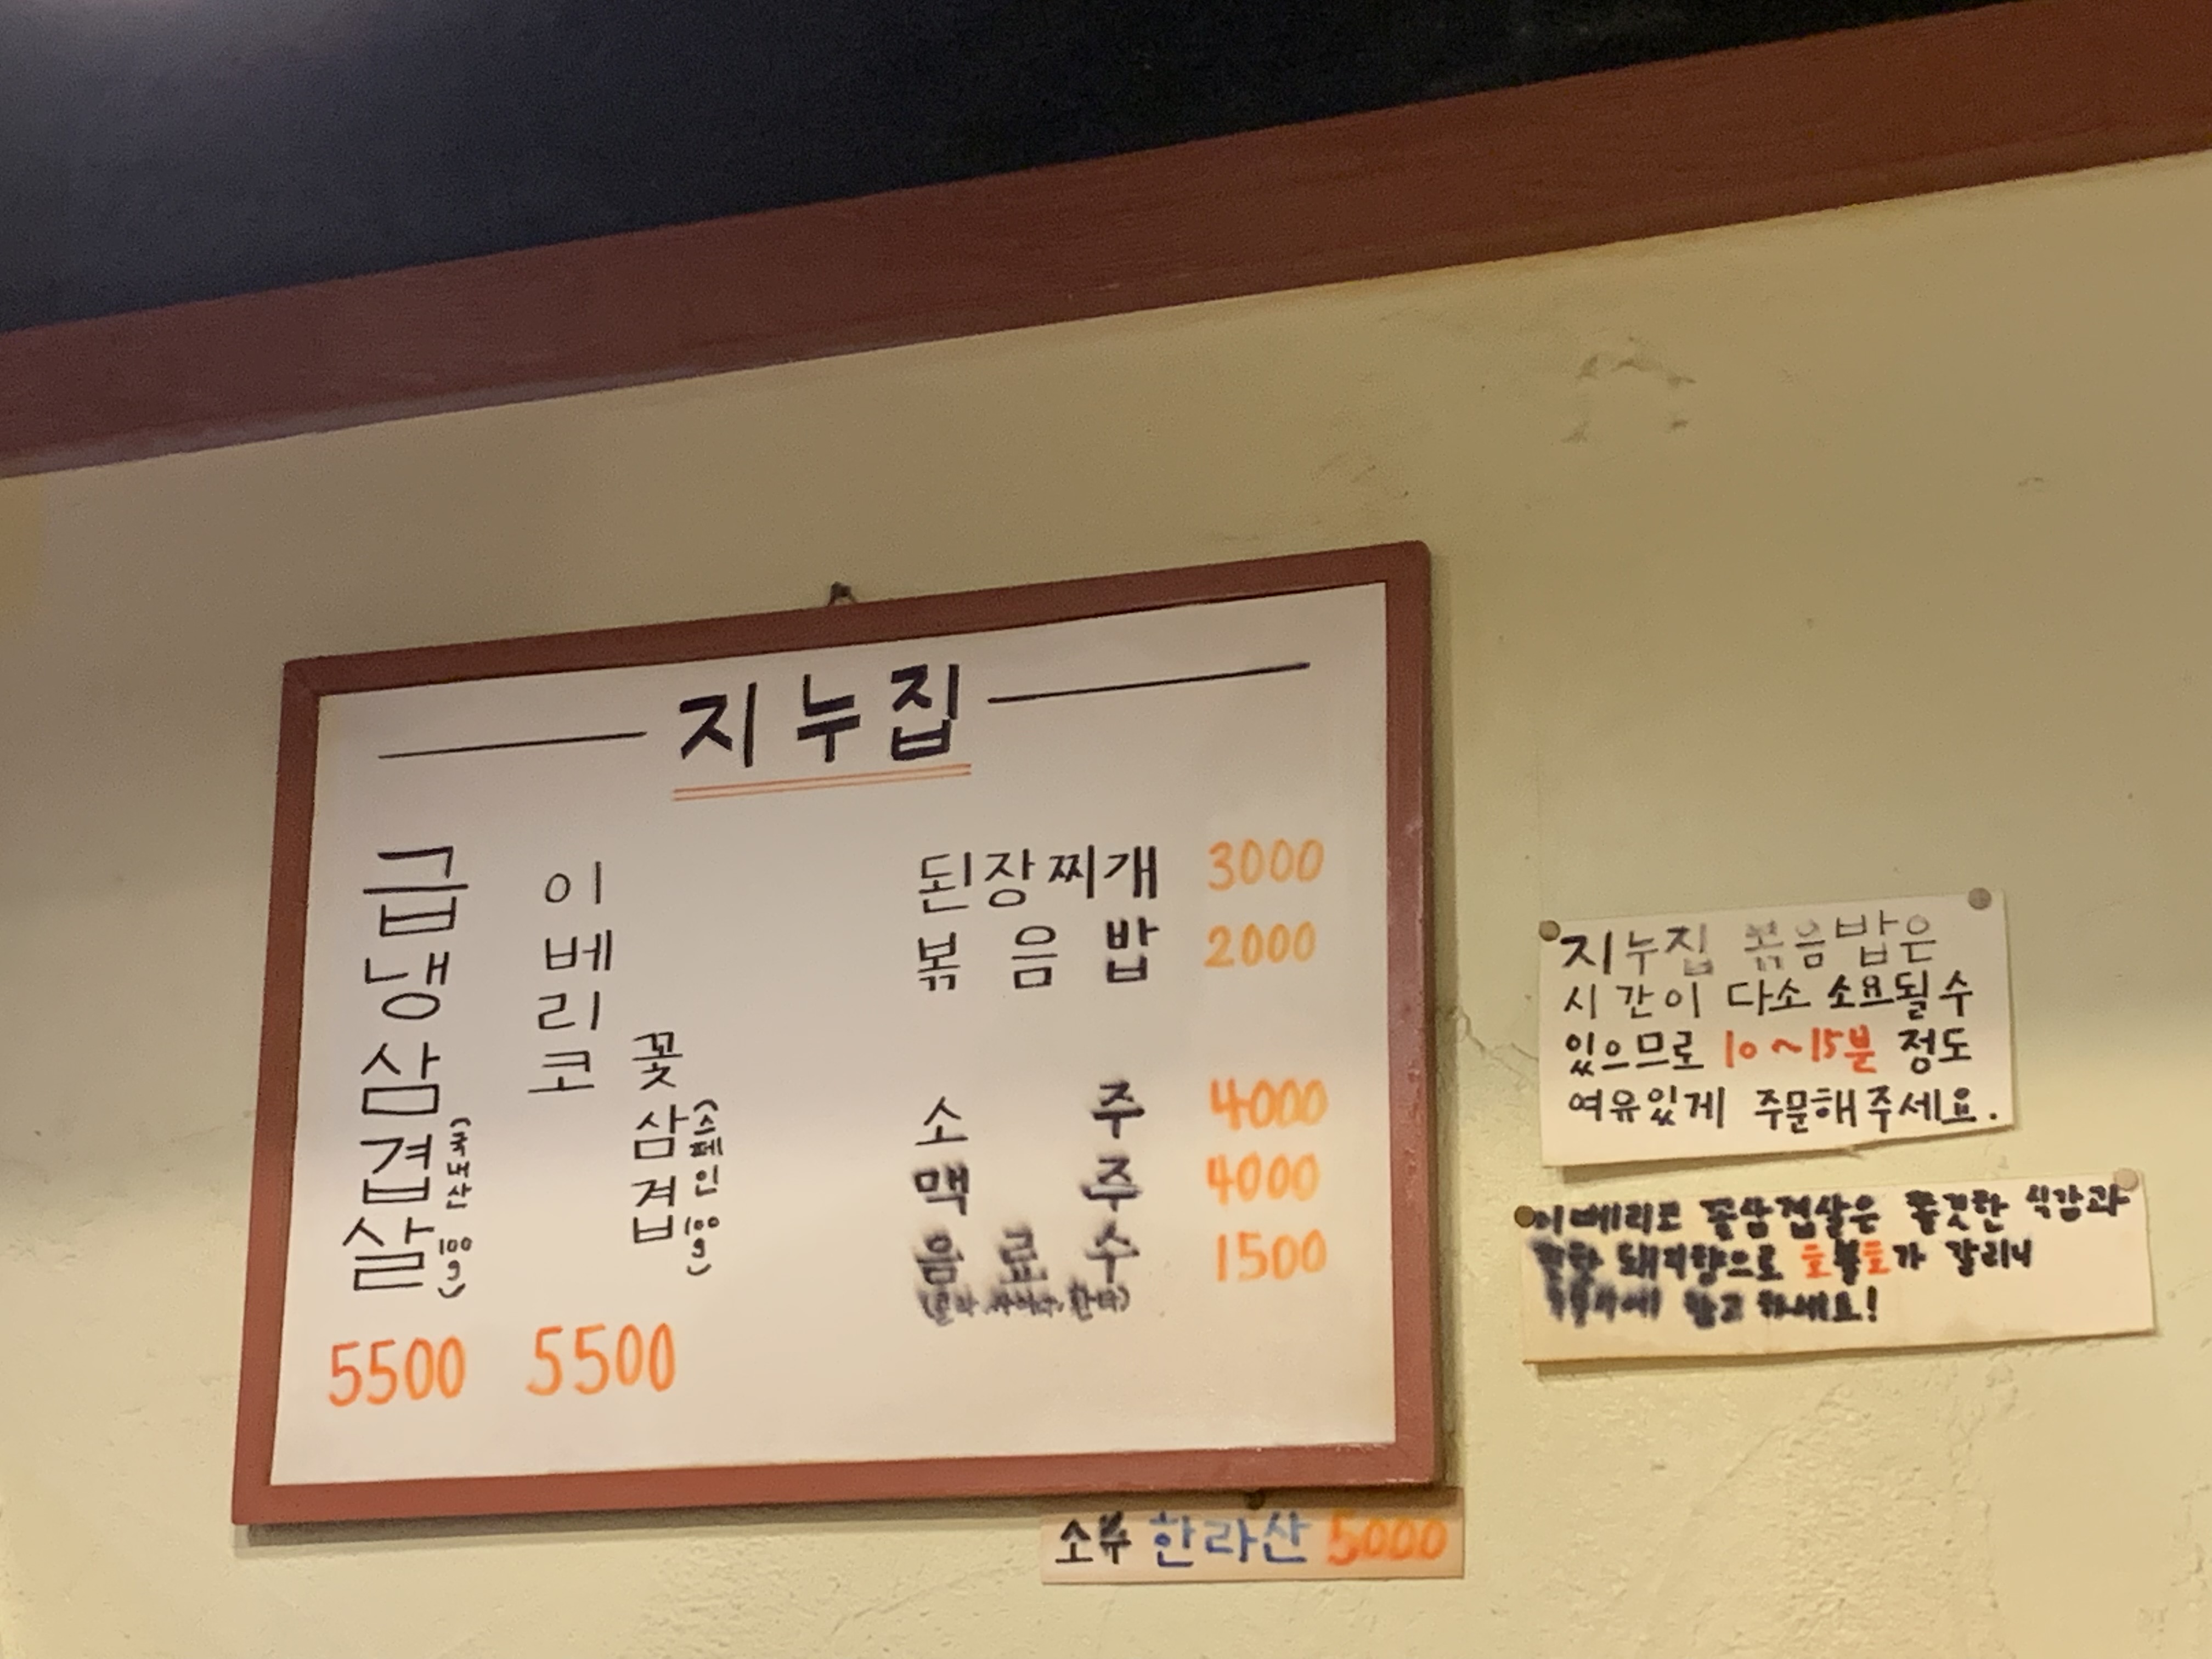 지누집
급냉삼겹살
(국내산 100g)
5500
이베리코
꽃삼겹
(스페인 100g)
5500
된장찌개 3000
볶음밥 2000
소주 4000
맥주 4000
음료수 1500
소주 한라산 5000
지누집 볶음밥은
시간이 다소 소요될수
있으므로 10~15분 정도
여유있게 주문해주세요.
이베리코 꽃삼겹살은 쫄깃한 식감과
돼지향으로 호불호가 갈리니
하세요!